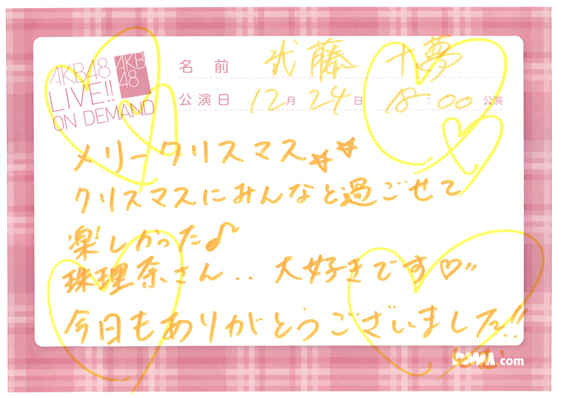 AKB48
LIVE!!
ON DEMAND
AKB
48
名 前 武藤 十夢
公演日 12月 24日 18:00 公演
メリークリスマス☆☆
クリスマスにみんなと過ごせて
楽しかった♪
珠理奈さん.. 大好きです♡"
今日もありがとうございました!!
DMM.com